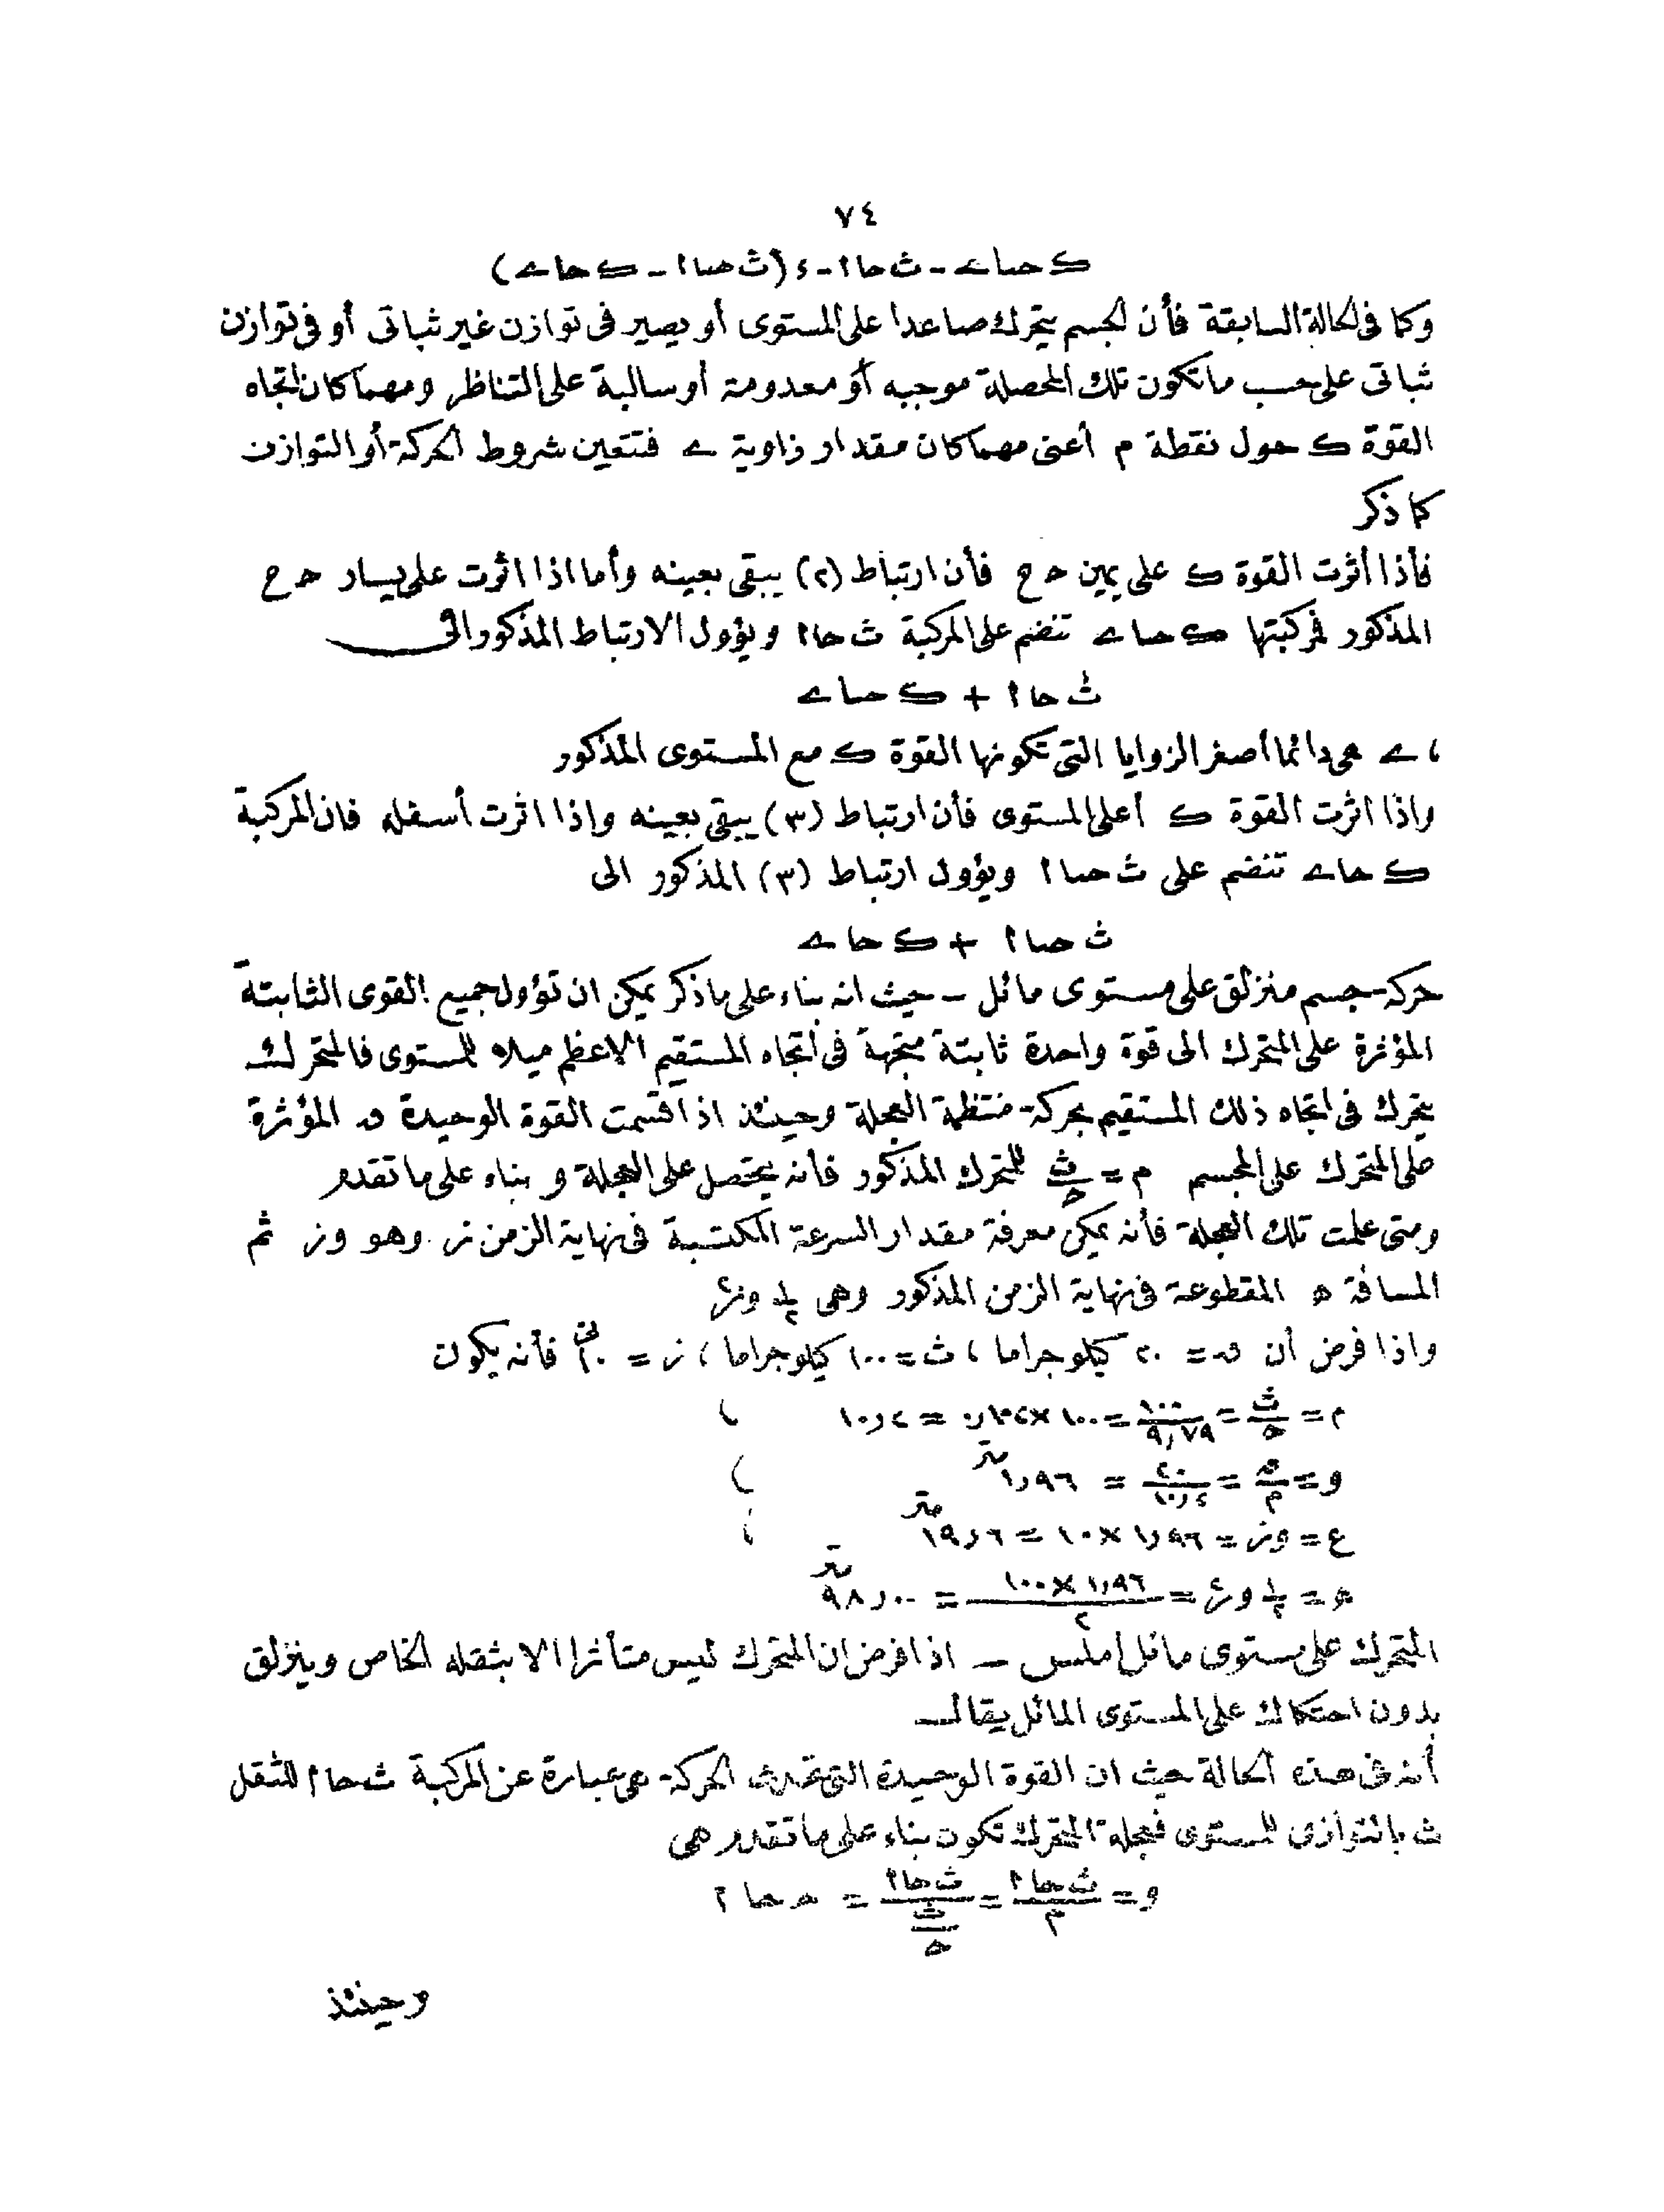 ٧٤
ك حتاے - ث حا ا - د (ث حتا ا - ك حاے)
وكما فى الحالة السابقة فأن الجسم يتحرك صاعدا على المستوى أو يصير فى توازن غير ثباتى أو فى توازن
ثباتى على حسب ما تكون تلك المحصلة موجبه أو معدومة أو سالبة على التناظر ومهما كان اتجاه
القوة ك حول نقطة م أعنى مهما كان مقدار زاوية ے فتتعين شروط الحركة أو التوازن
كما ذكر
فأذا أثرت القوة ك على يمين ح ح فأن ارتباط (٢) يبقى بعينه وأما اذا اثرت على يسار ح ح
المذكور فمركبتها ك حتاے تنضم على المركبة ث حا ا ويؤول الارتباط المذكور الى
ث حا ا + ك حتاے
، ے هى دائما أصغر الزوايا التى تكونها القوة ك مع المستوى المذكور
واذا اثرت القوة ك أعلى المستوى فأن ارتباط (٣) يبقى بعينه واذا اثرت أسفله فان المركبة
ك حاے تنضم على ث حتا ا ويؤول ارتباط (٣) المذكور الى
ث حتا ا + ك حاے
حركة جسم منزلق على مستوى مائل ـ حيث انه بناء على ما ذكر يمكن ان تؤول جميع القوى الثابتة
المؤثرة على المتحرك الى قوة واحدة ثابتة متجهة فى اتجاه المستقيم الاعظم ميلا للمستوى فالمتحرك
يتحرك فى اتجاه ذلك المستقيم بحركة منتظمة العجلة وحينئذ اذا اقسمت القوة الوحيدة ق المؤثرة
على المتحرك على الجسم م = ث/ح للمتحرك المذكور فأنه يتحصل على العجلة و بناء على ما تقدم
ومتى علمت تلك العجلة فأنه يمكن معرفة مقدار السرعة المكتسبة فى نهاية الزمن ز وهو وز ثم
المسافة ه المقطوعة فى نهاية الزمن المذكور وهى ١/٢ وز٢
واذا فرض أن ق = ٢٠ كيلو جراما ، ث = ١٠٠ كيلو جراما ، ز = ١٠ فأنه يكون
م = ث/ح = ١٠٠/٩,٧٩ = ١٠٠ × ٠,١٠٢ = ١٠,٢ ،
و = ق/م = ٢٠/١٠,٢ = ١,٩٦ متر ،
ع = وز = ١,٩٦ × ١٠ = ١٩,٦ متر ،
ه = ١/٢ وز٢ = ١,٩٦ × ١٠٠/٢ = ٩٨,٠٠ متر
المتحرك على مستوى مائل أملس ـ اذا فرض ان المتحرك ليس متأثرا الا بثقله الخاص وينزلق
بدون احتكاك على المستوى المائل يقال
أنه فى هذه الحالة حيث ان القوة الوحيدة التى تحدث الحركة هى عبارة عن المركبة ث حا ا للثقل
ث بالتوازى للمستوى فعجلة المتحرك تكون بناء على ما تقدم هى
و = ث حا ا/م = ث حا ا/(ث/ح) = ح حا ا
وحينئذ